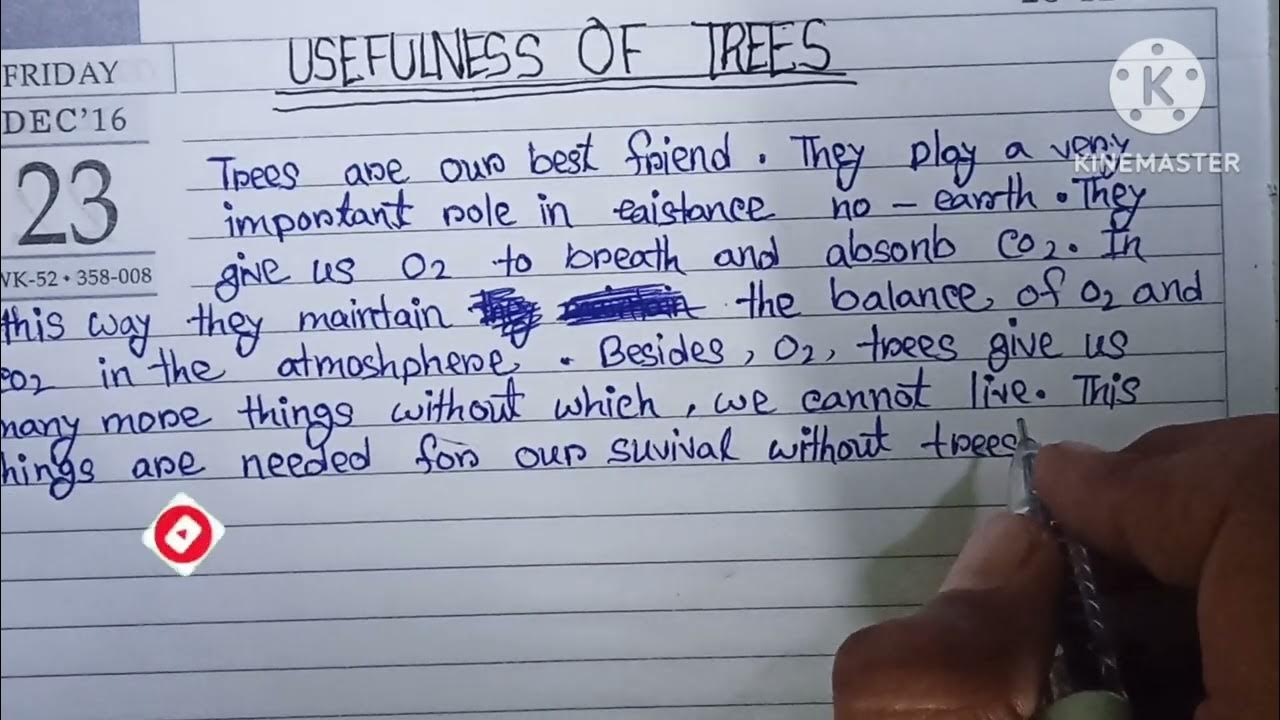 USEFULNESS OF TREES
FRIDAY
DEC'16
23
VK-52 • 358-008
K
KINEMASTER
Trees are our best friend. They play a very
important role in eaistance no - earth. They
give us O2 to breath and absorb CO2. In
this way they maintain the balance, of O2 and
CO2 in the atmoshphere, . Besides, O2, trees give us
many more things without which, we cannot live. This
hings are needed for our suvival without trees